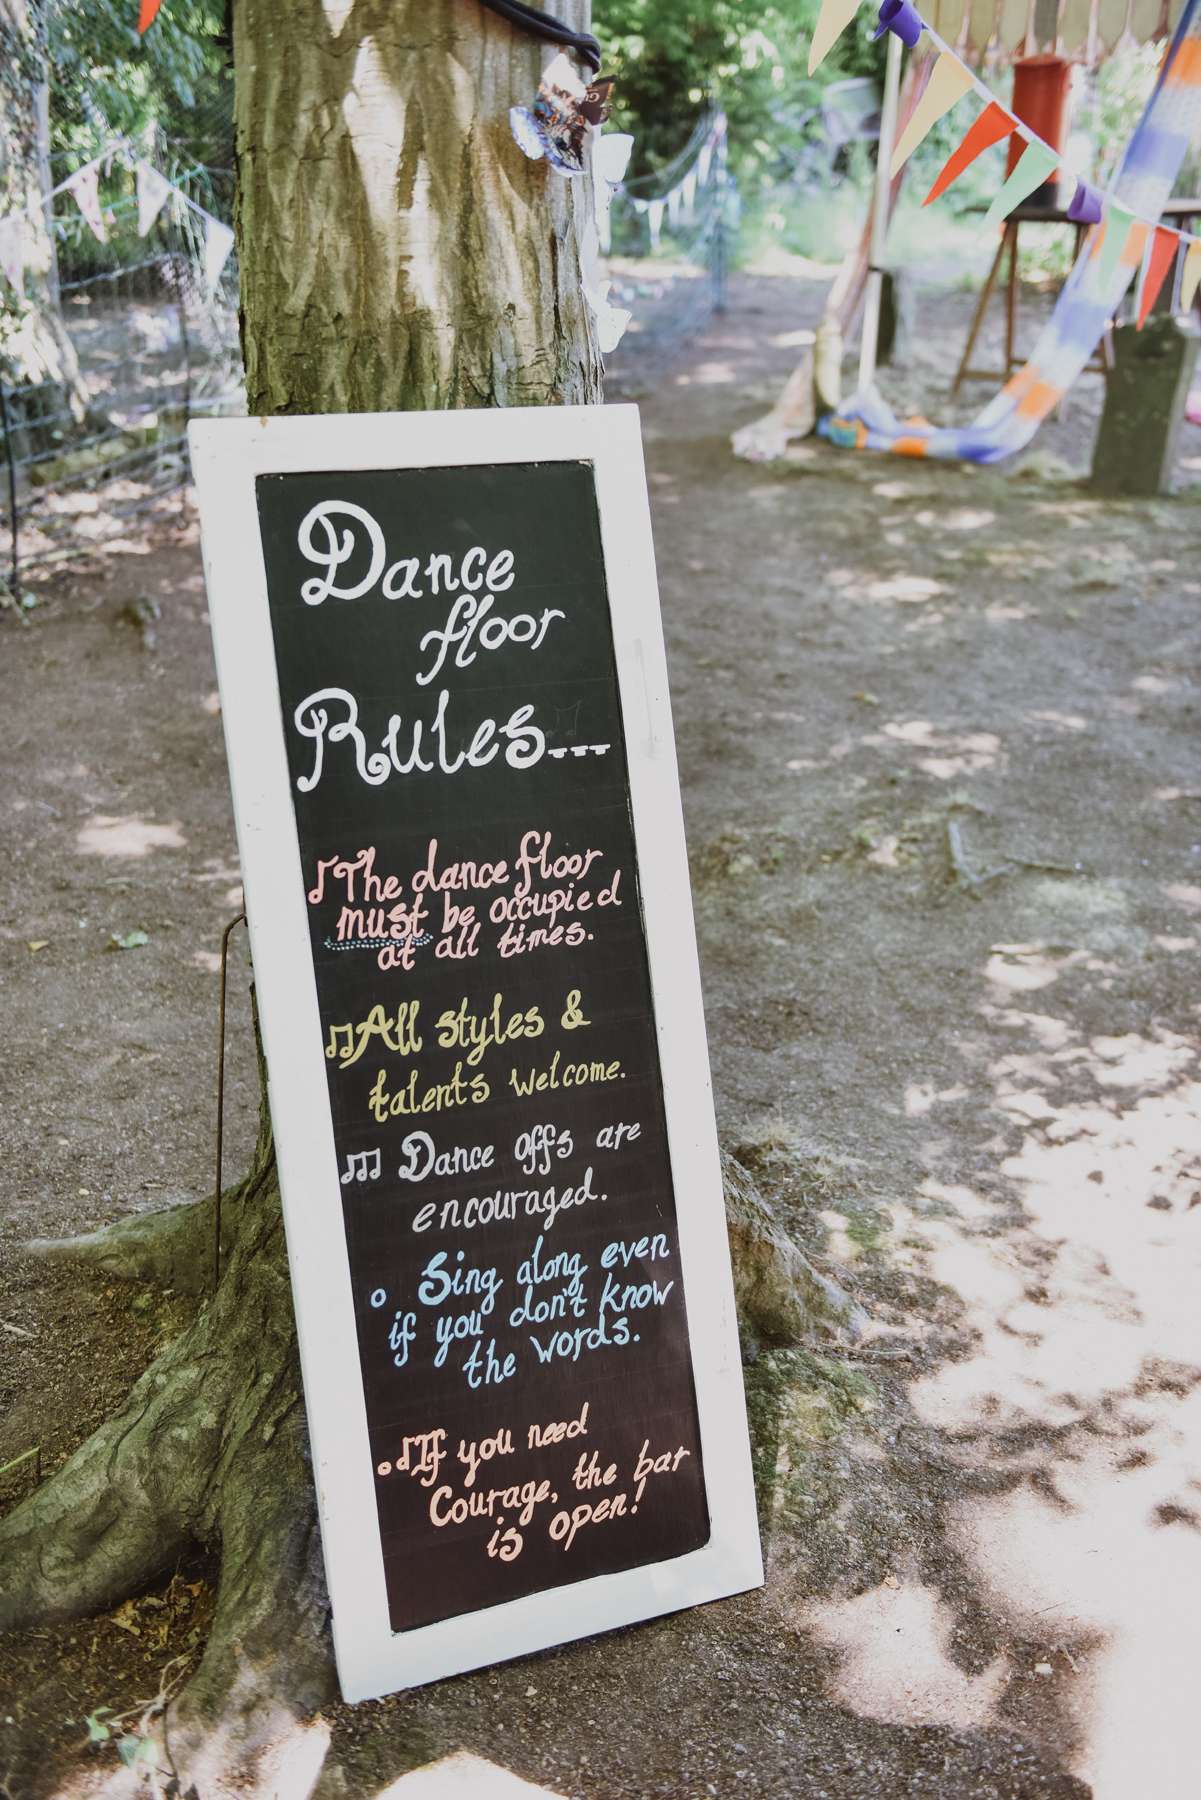 Dance
floor
Rules...
The dance floor
must be occupied
at all times.
All styles &
talents welcome.
Dance offs are
encouraged.
Sing along even
if you don't know
the words.
If you need
Courage, the bar
is open!